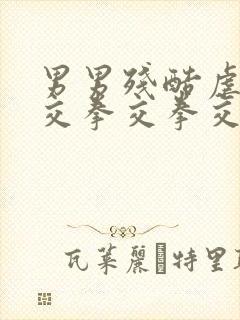 男男殘酷虐
交拳交拳交
瓦萊麗 特里